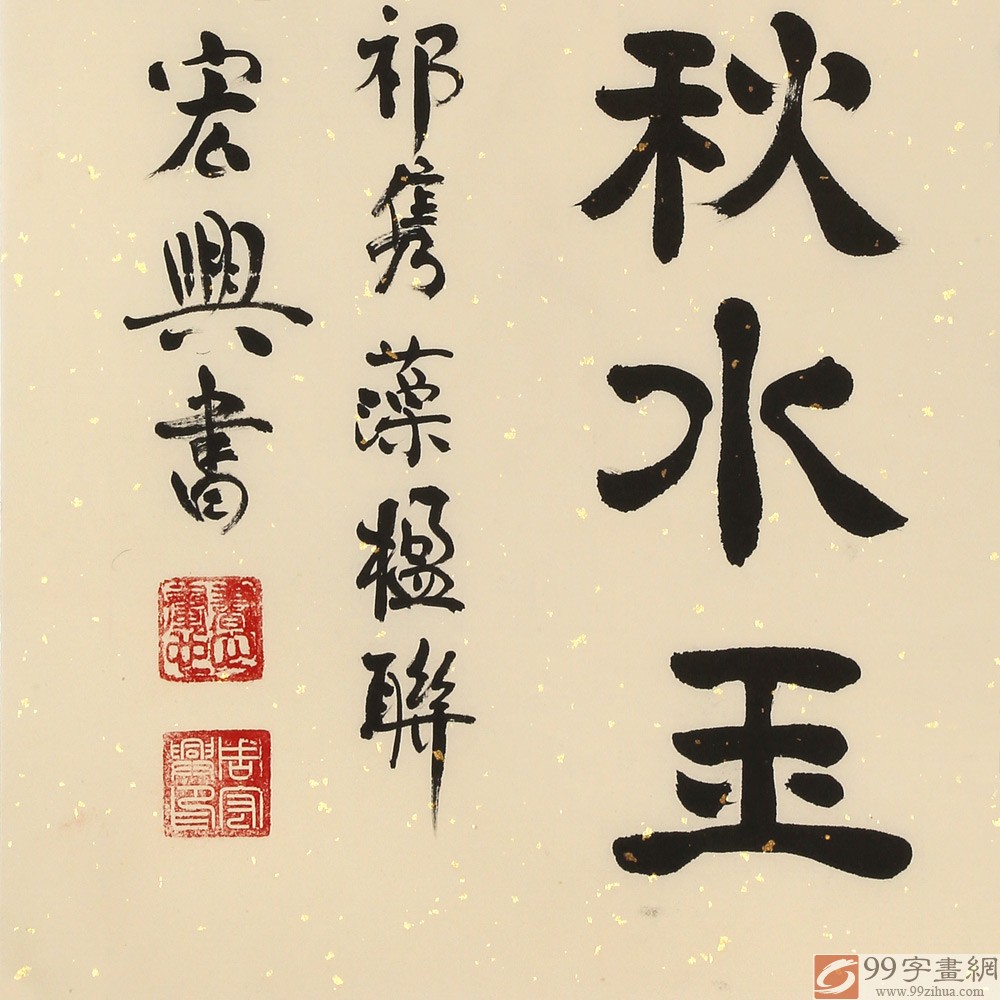 秋水玉
祁雋藻楹聯
宏興書
周宏興印
99字畫網
www.99zihua.com